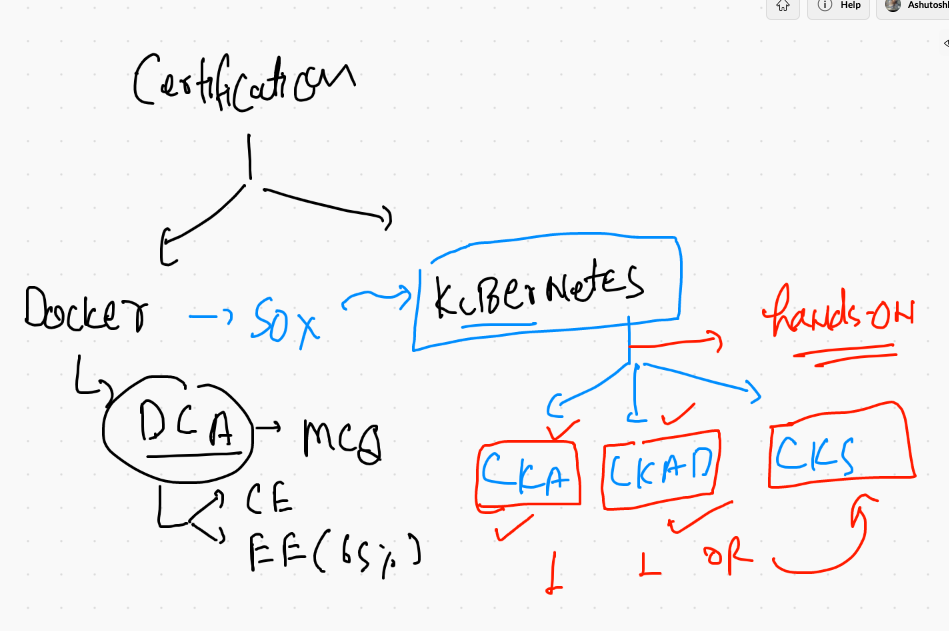 Help
Ashutosh
Certification
Docker → 50x
KuBerNetes
hands-ON
DCA → MCQ
CE
EE (65%)
CKA
CKAD
CKS
1
1 OR